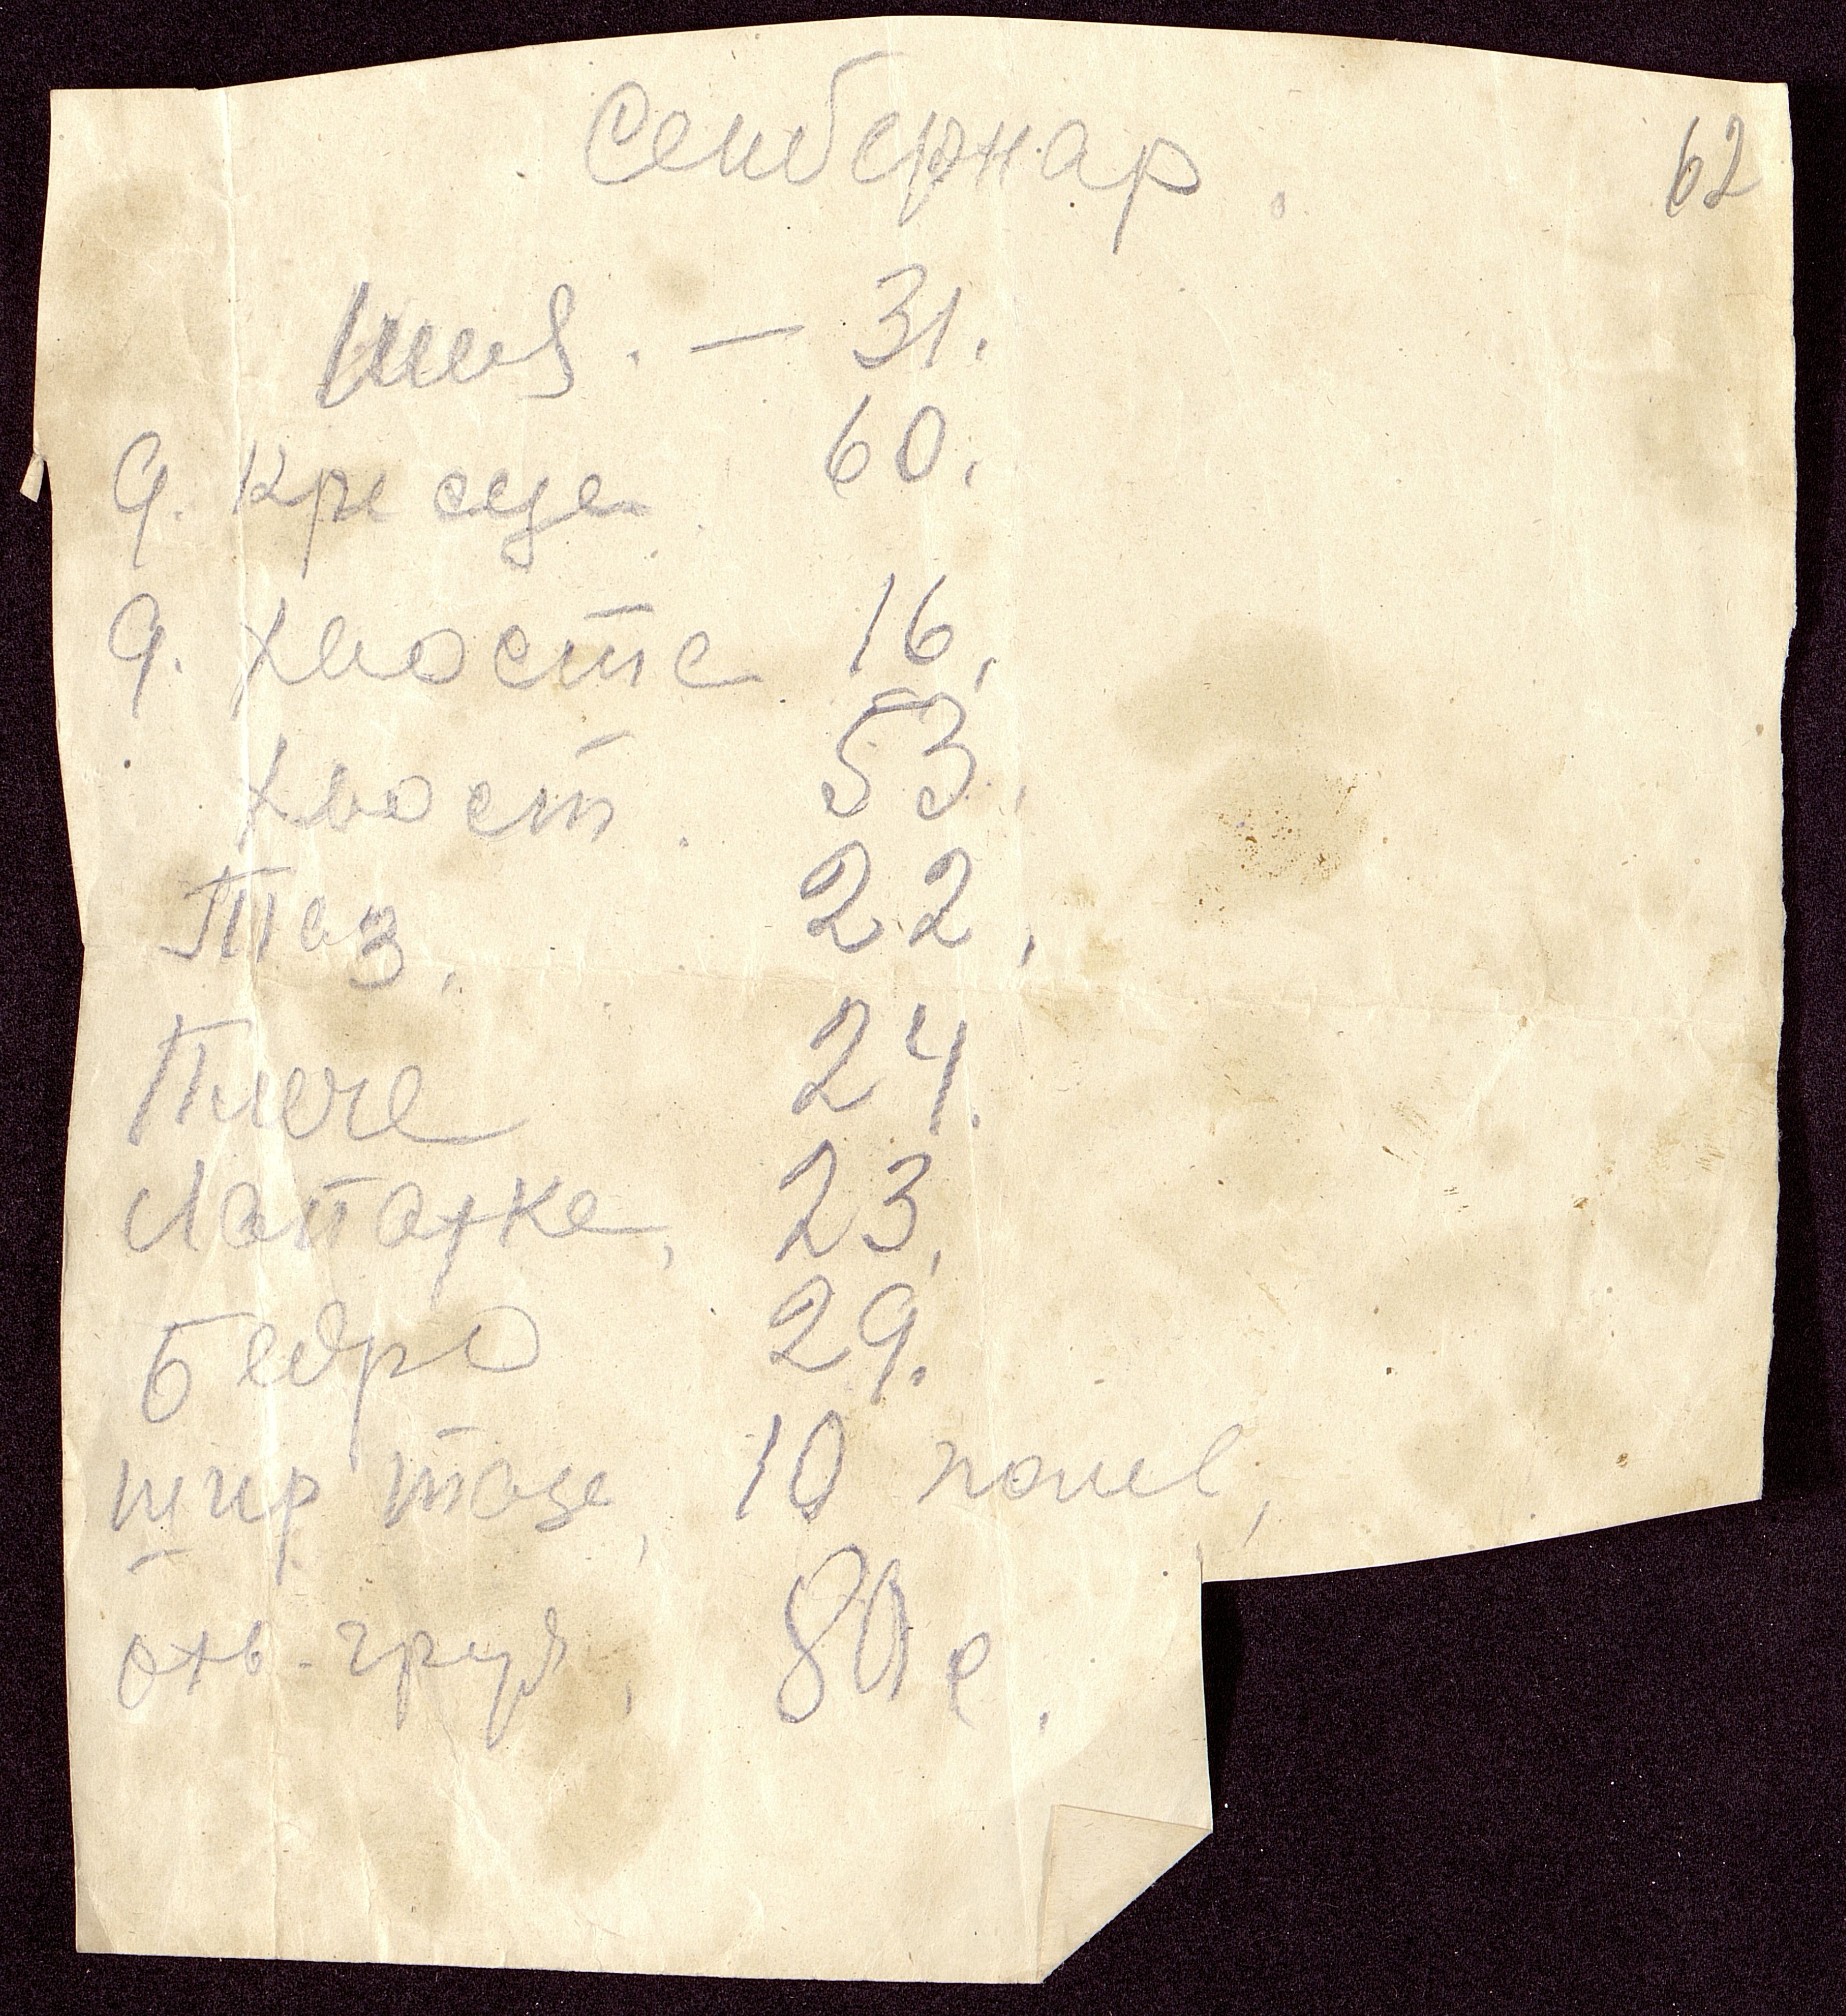 Сенбернар.
62
Шея. — 31.
д. Крестца 60.
д. хвоста 16.
хвост. 53.
Таз. 22.
Плече 24.
Лопатка, 23.
Бедро 29.
шир таза, 10
грудь, 80